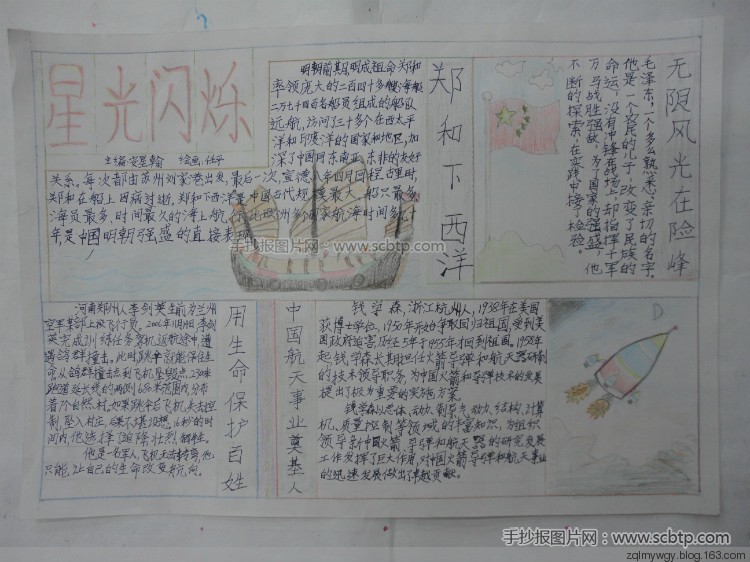 星光闪烁
主编:安昱翰 绘画:任子
明朝前期,明成祖命郑和
率领庞大的二百四十多艘海船
二万七千四百名船员组成的船队
远航,访问三十多个在西太平
洋和印度洋的国家和地区,加
深了中国同东南亚、东非的友好
关系。每次都由苏州刘家港出发,最后一次,宣德八年四月回程古里时,
郑和在船上因病过逝。郑和下西洋是中国古代规模最大、船只最多、
海员最多、时间最久的海上航行,比欧洲多个国家航海时间多几十
年,是中国明朝强盛的直接表现。
郑和下西洋
无限风光在险峰
毛泽东,一个多么熟悉、亲切的名字。
他是一个农民的儿子,改变了民族的
命运,没有冲锋在战场上却指挥千军
万马战胜强敌。为了国家的强盛,他
不断的探索,在实践中接了检验。
河南郑州人李剑英生前为兰州
空军某部上校飞行员。
英完成训练任务驾机返航途中,遭
遇鸽群撞击。此时跳伞容能保住生
命,从鸽群撞击点到飞机坠毁点,2300米
跑道延长线的两侧680米范围内,分布
着7个自然村。如果跳伞后飞机失去控
制,坠入村庄,后果不堪设想。16秒的时
间内他选择迫降壮烈牺牲。
他是一名军人,飞机无法转弯,他
只能让自己的生命改变航向。
用生命保护百姓
中国航天事业奠基人
钱学森,浙江杭州人,1938年在美国
获博士学位,1950年开始争取回归祖国,受到美
国政府迫害,历经5年于1955年回到祖国。1958年
起,钱学森长期担任火箭导弹和航天器研制
的技术领导职务,为中国火箭和导弹技术的发展
提出了极为重要的实施方案。
钱学森以总体、动力、制导、气动力、结构、计算
机、质量控制等领域的丰富知识,为组织
领导新中国火箭、导弹和航天器的研究发展
工作发挥了巨大作用,对中国火箭导弹和航天事业
的迅速发展做出了卓越贡献。
手抄报图片网:www.scbtp.com
手抄报图片网:www.scbtp.com
zqlmywgy.blog.163.com